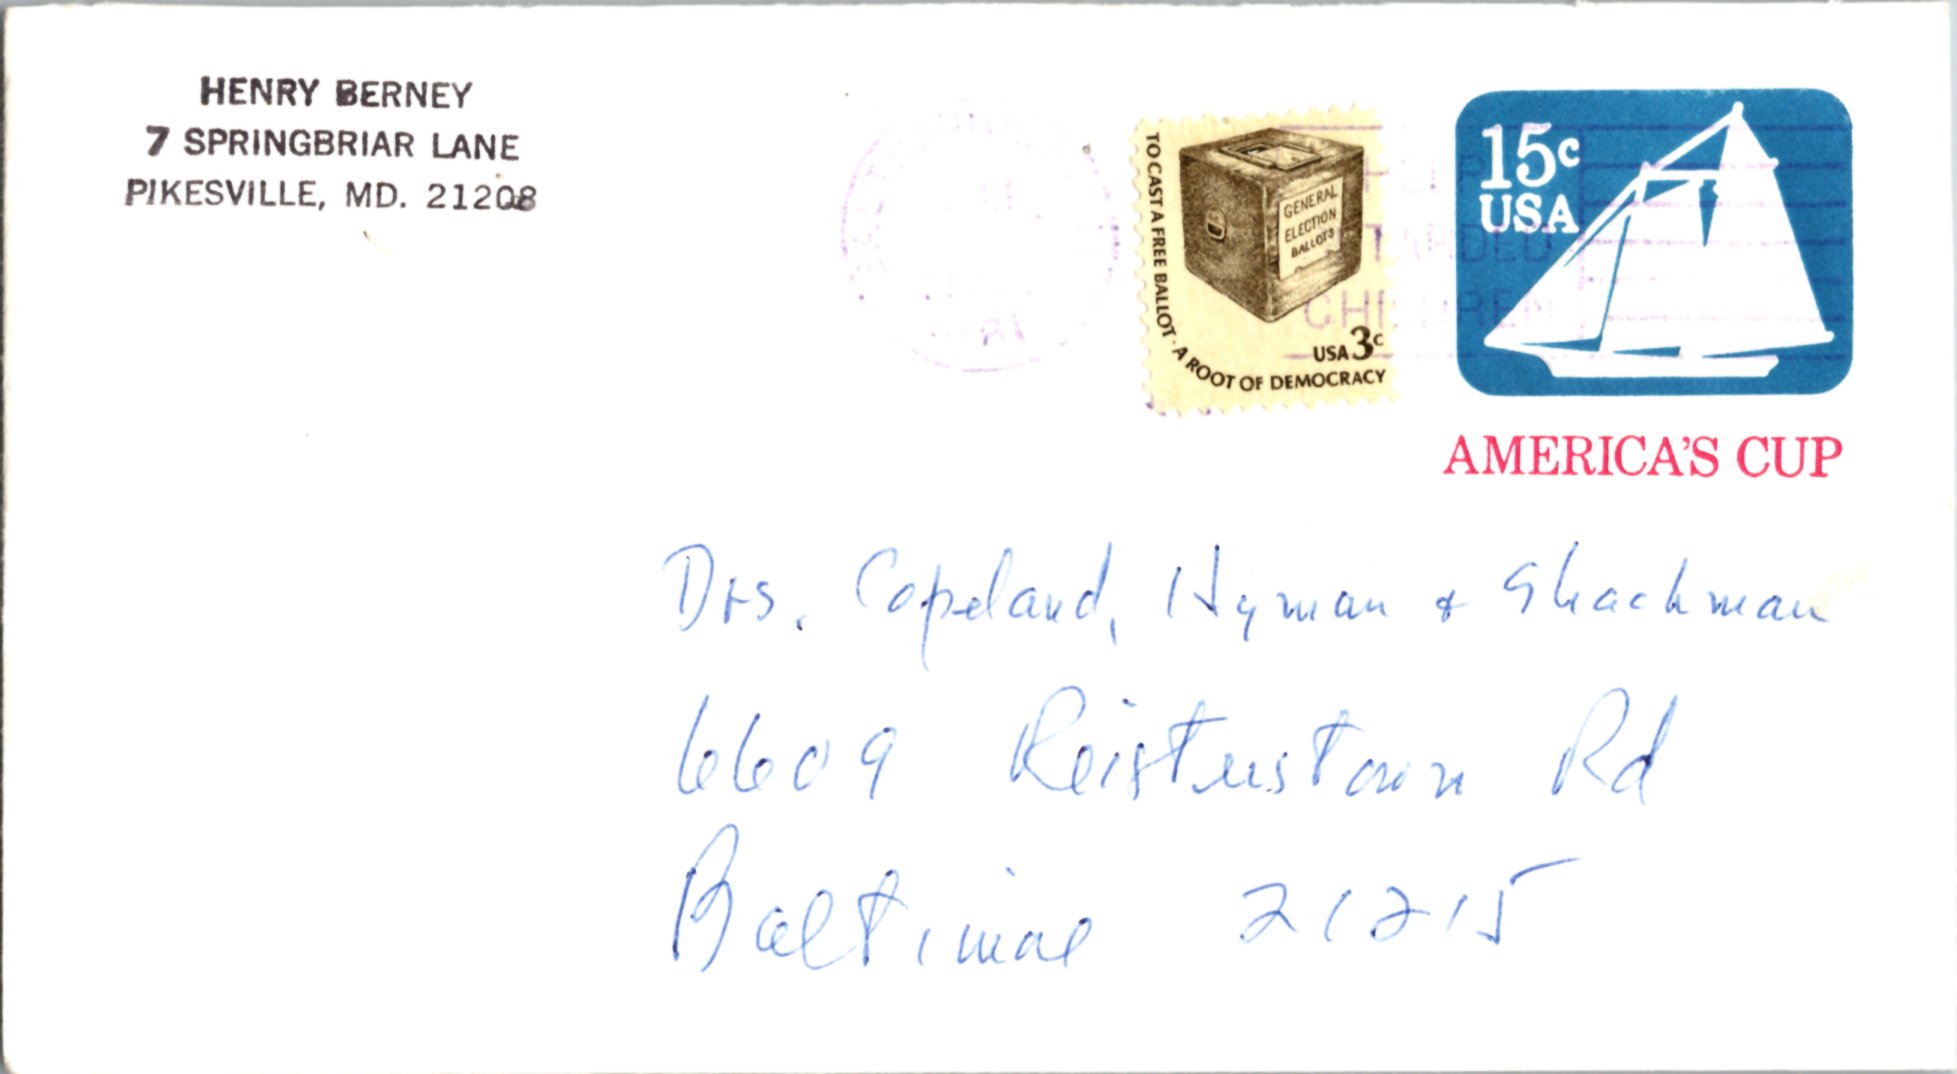 HENRY BERNEY
7 SPRINGBRIAR LANE
PIKESVILLE, MD. 21208
TO CAST A FREE BALLOT · A ROOT OF DEMOCRACY
GENERAL
ELECTION
BALLOTS
USA 3c
15c
USA
AMERICA'S CUP
CHILDREN
Drs. Copeland, Hyman & Shachman
6609 Reisterstown Rd
Baltimore 21215